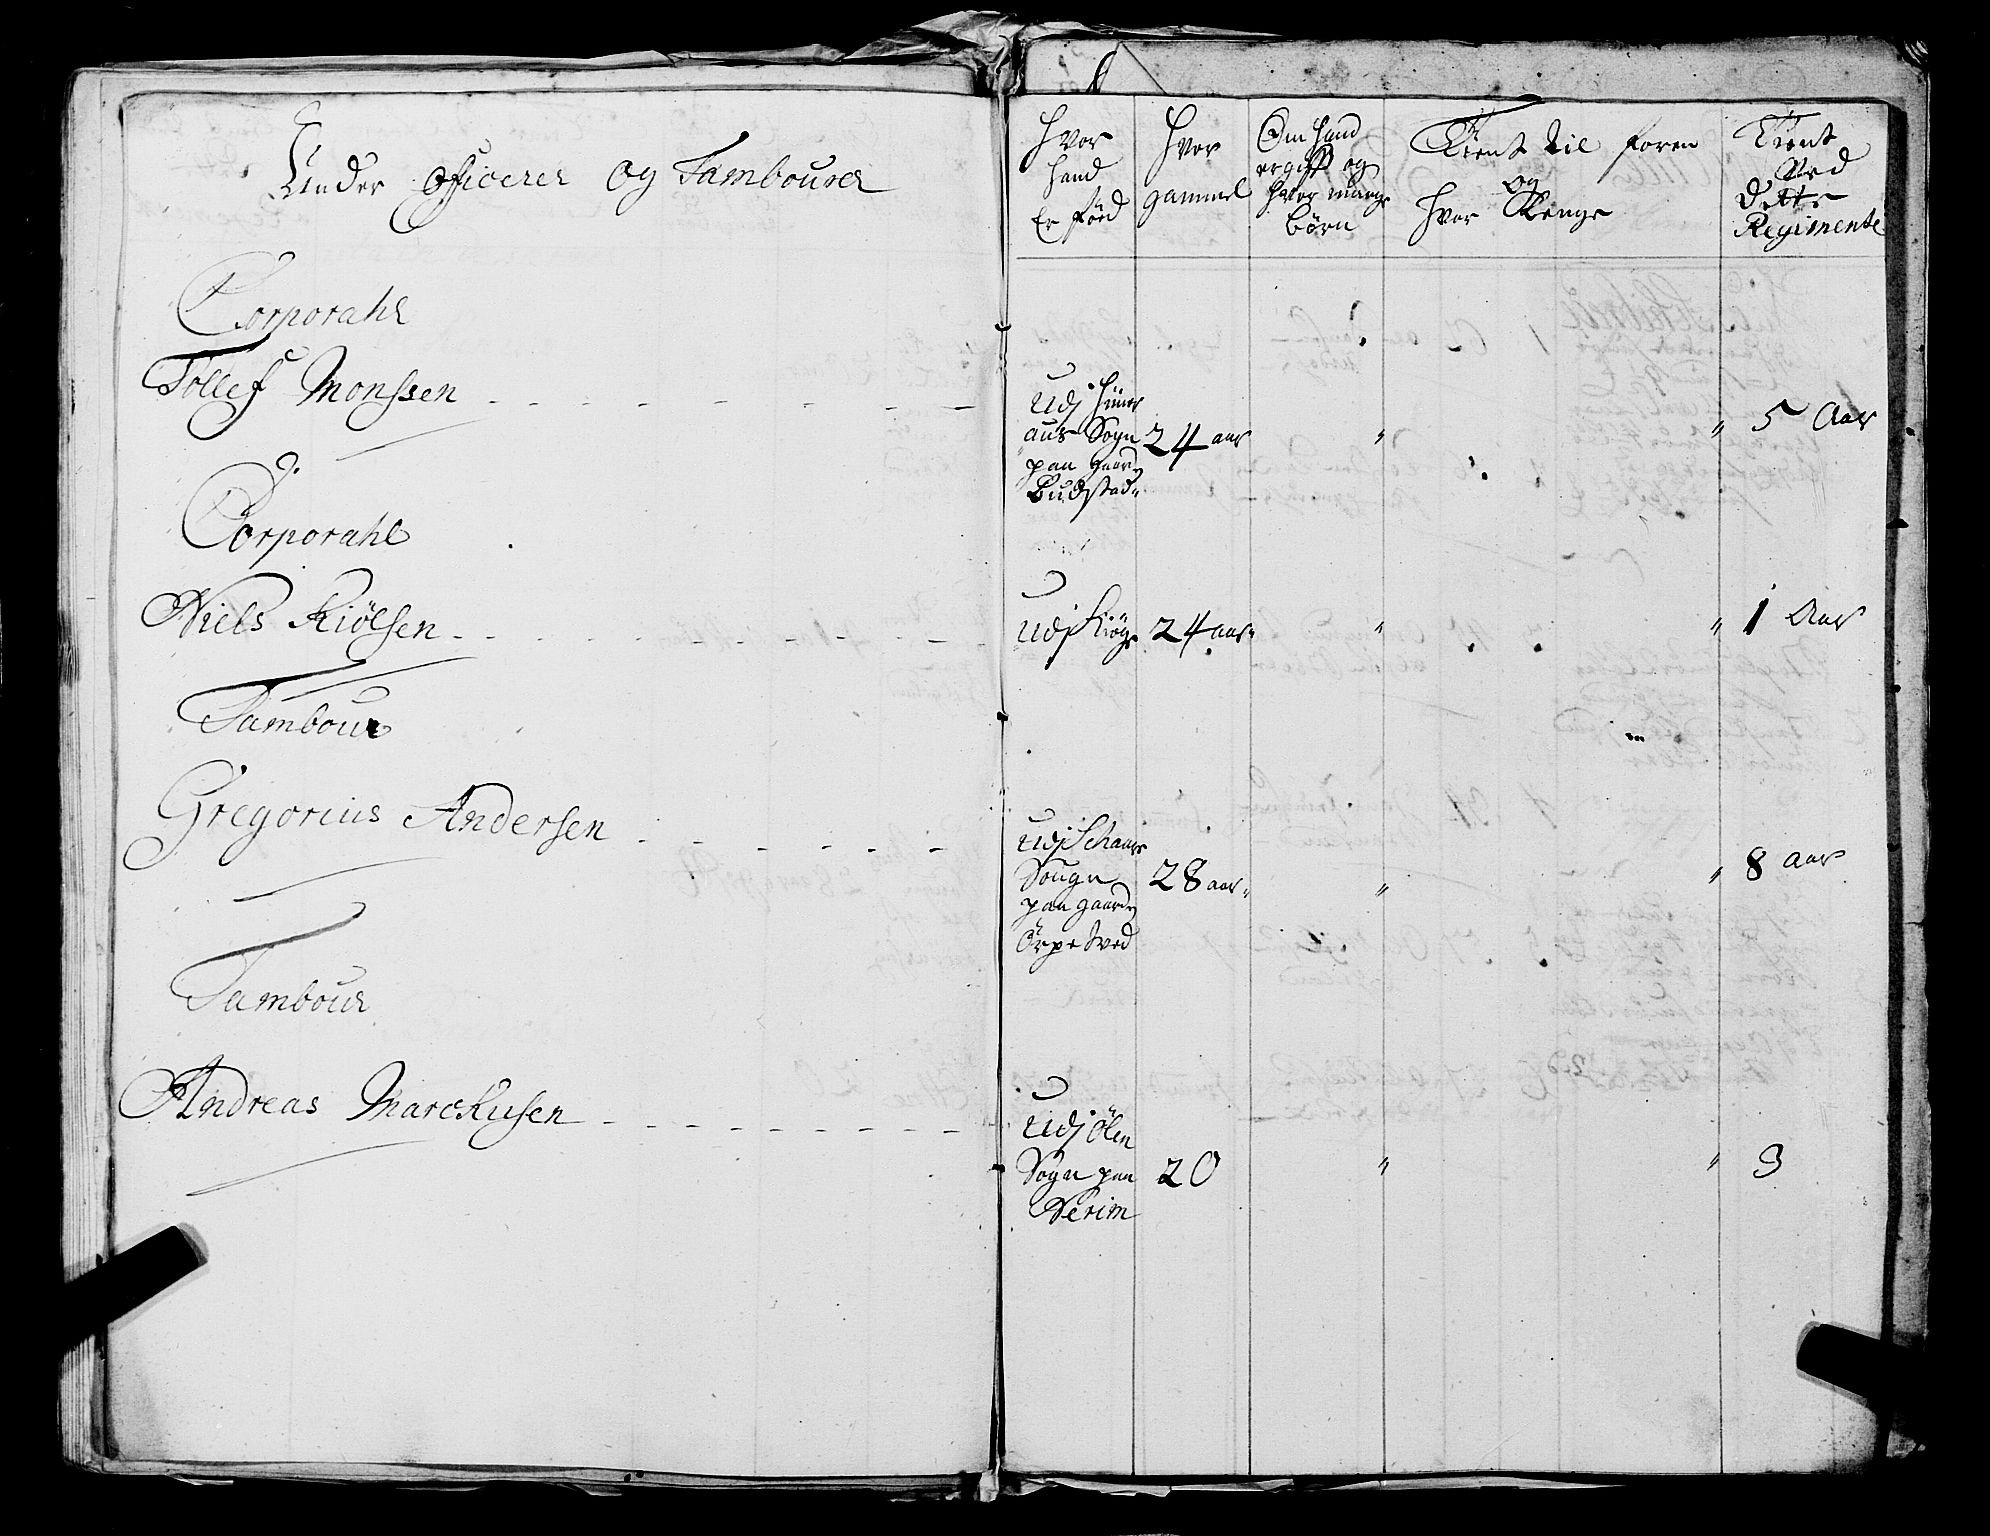 Under officerer og Tambourer
Corporahl
Tollef Monssen
Corporahl
Niels Kiölsen
Tambour
Gregorius Andersen
Tambour
Andreas Marckusen
Hvor
hand
Er föed
Hvor
gammel
Om hand
er gifft og
hvor mange
börn
Tient til foren
og
hvor Lenge
Tient
Ved
Dette
Regimente
Udj
Sogn
paa gaard
Budstad
24 aar
"
"
5 Aar
Udj Kiöge
24 aar
"
"
1 Aar
Udj
Sougn
paa gaard
28 aar
"
"
8 aar
Udj Ölen
Sogn paa
20
"
"
3